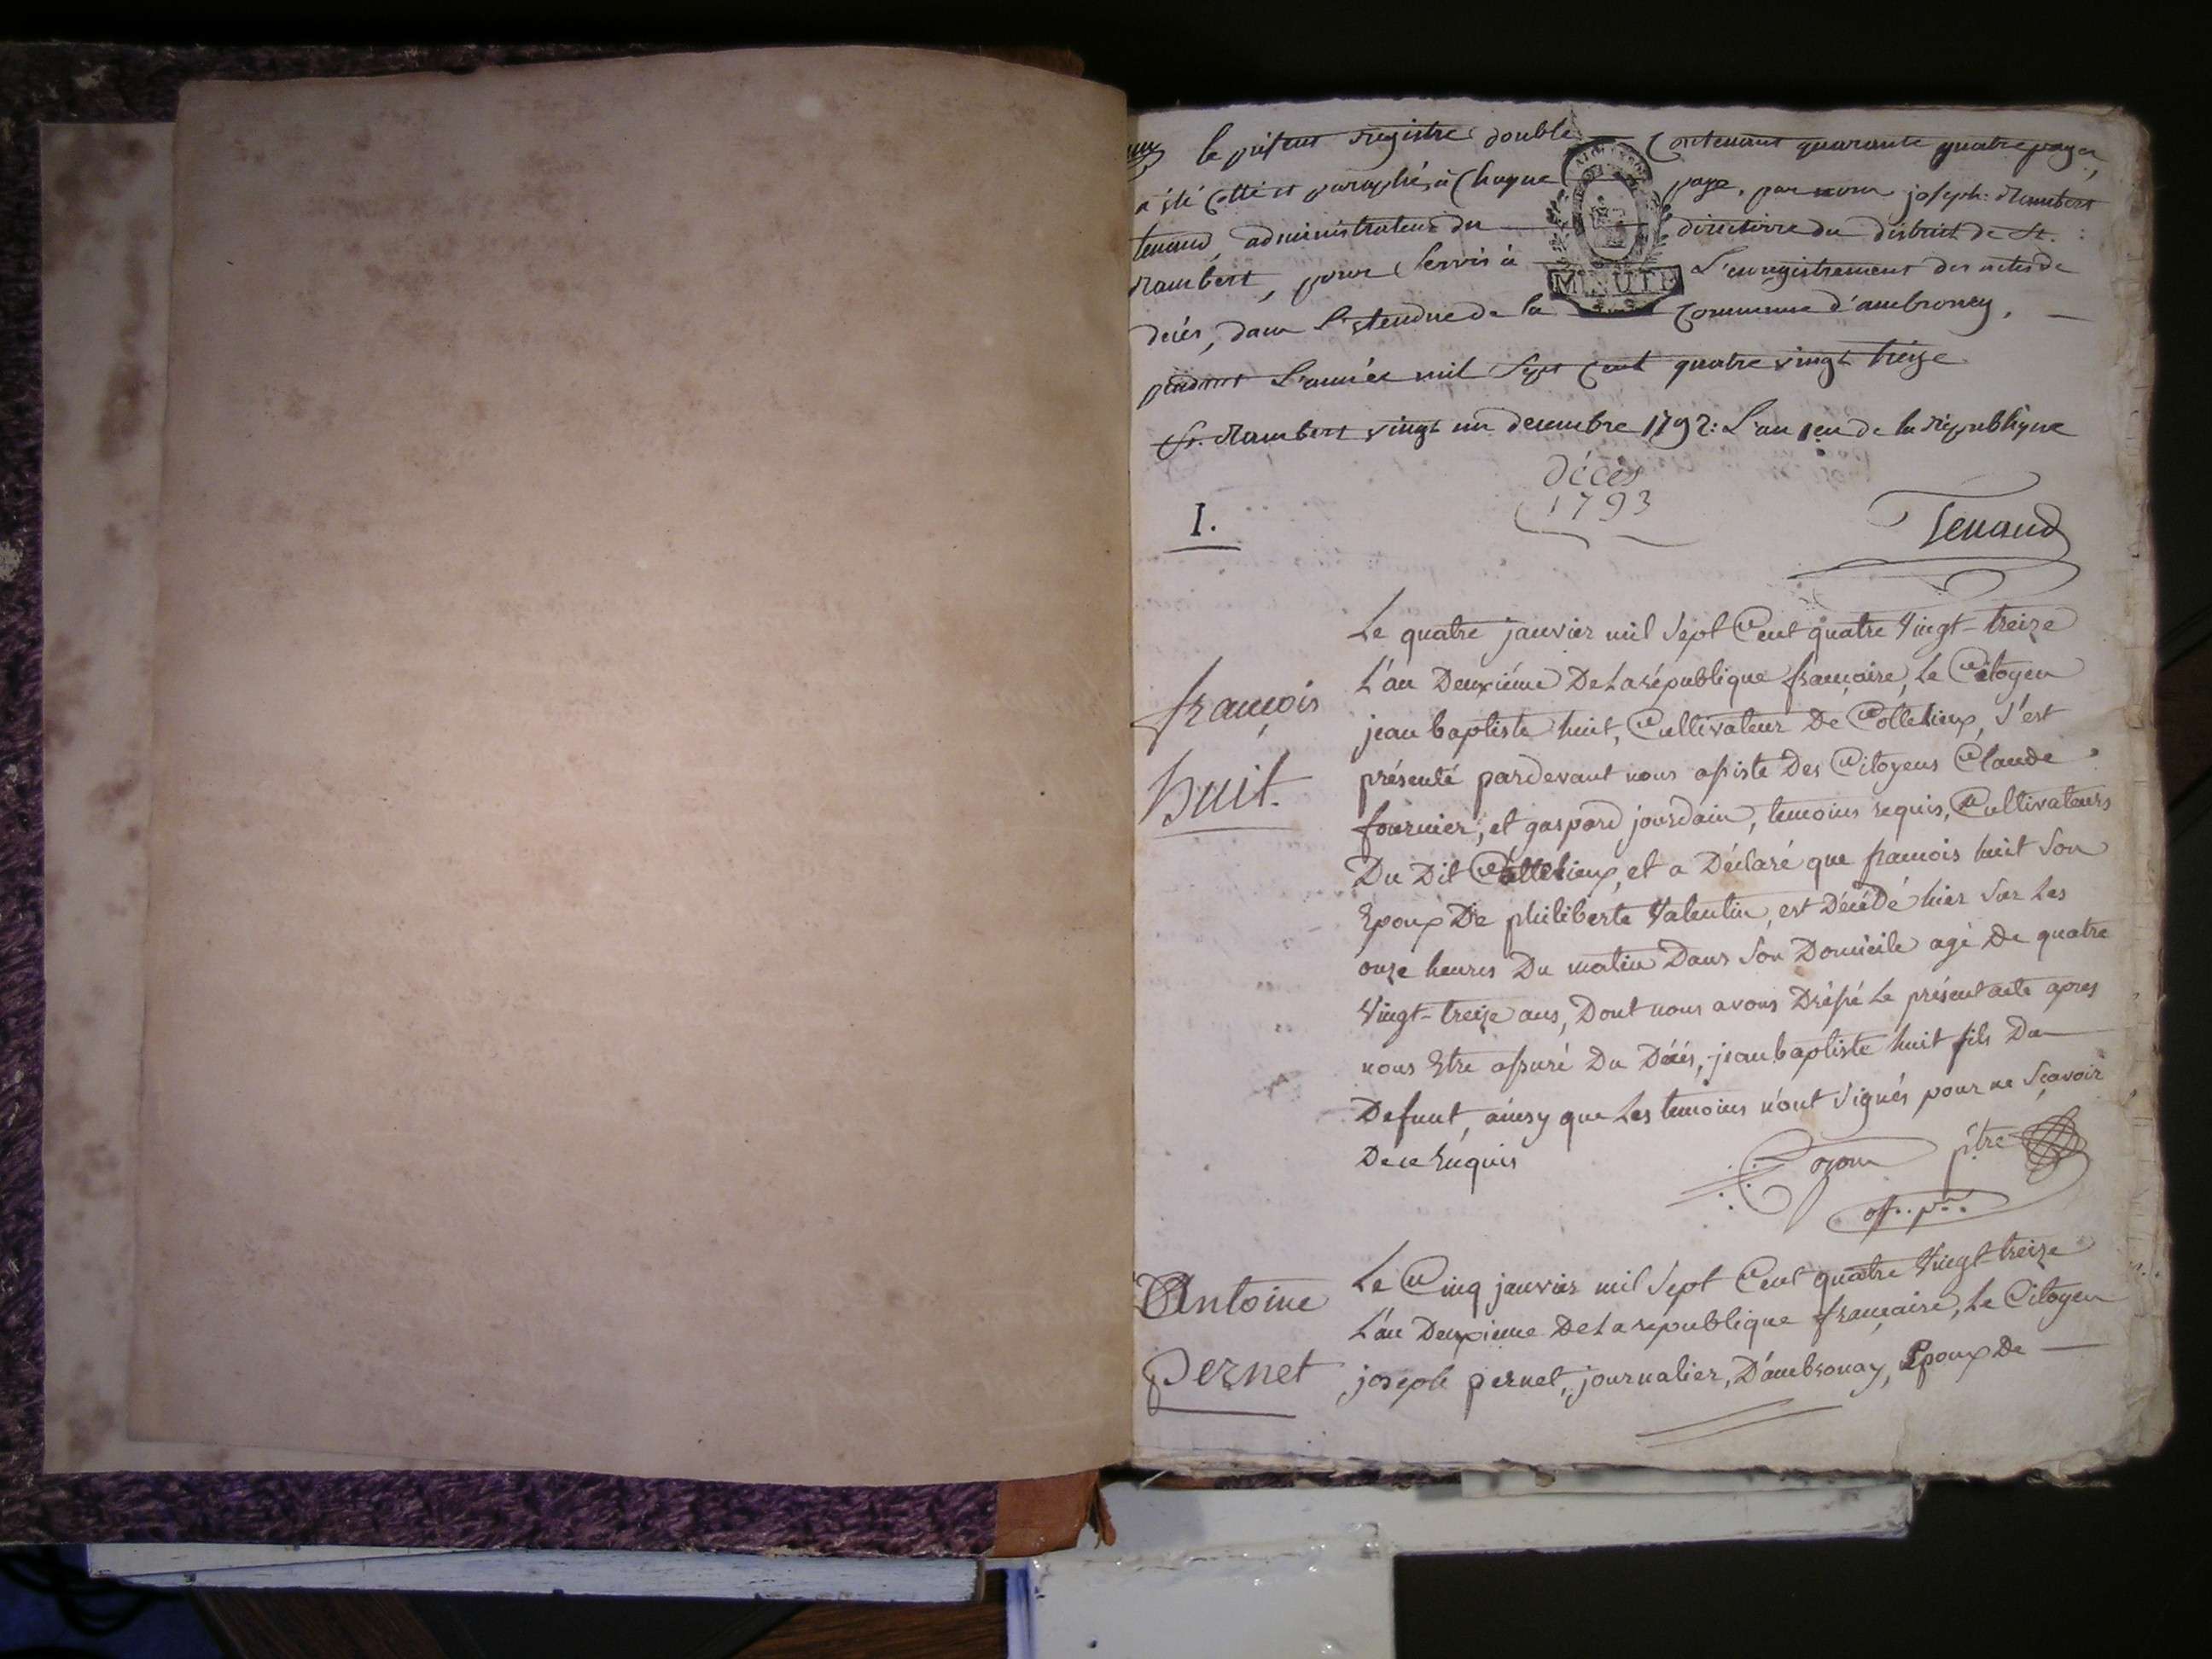 le présent registre double contenant quarante quatre pages,
a été cotté et paraphé, à chaque page, par nous joseph: Rambert
tenand, administrateur du directoire du district de St.
Rambert, pour servir à L'enregistrement des actes de
décès, dans L'étendue de la commune d'ambronay,
pendant L'année mil sept cent quatre vingt treize
St. Rambert vingt un decembre 1792: L'an 1er de la République
MINUTE
décès
1793
I.
Tenand
Le quatre janvier mil sept Cent quatre Vingt-treize
L'an Deuxiéme De La république française, Le Citoyen
jean baptiste huit, Cultivateur De Collelieux, s'est
présenté pardevant nous assisté Des Citoyens Claude
fournier, et gaspard jourdain, temoins requis, Cultivateurs
Du Dit Collelieux, et a Déclaré que françois huit Son
Epoux De philiberte Valentin, est Décédé hier Sur Les
onze heures Du matin Dans Son Domicile agé De quatre
Vingt-treize ans, Dont nous avons Dréssé Le présent acte apres
nous Etre assuré Du Décés, jean baptiste huit fils Du
Defunt, ainsy que Les temoins n'ont Signés pour ne Sçavoir
De ce Enquis
françois
huit.
ptre
off.. p..
Le Cinq janvier mil Sept Cent quatre Vingt treize
L'an Deuxieme De La republique française, Le Citoyen
joseph pernet, journalier, D'ambronay, Epoux De
Antoine
pernet